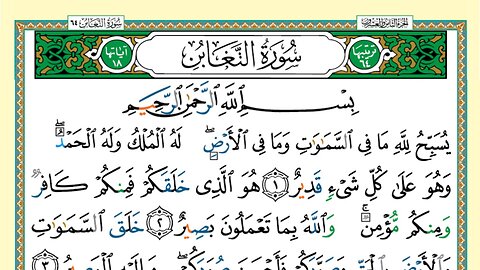 الجزء الثامن والعشرون
سورة التغابن ٦٤
ترتيبها ٦٤
سُورَةُ التَّغَابُنِ
آياتها ١٨
بِسْمِ اللَّهِ الرَّحْمَٰنِ الرَّحِيمِ
يُسَبِّحُ لِلَّهِ مَا فِى السَّمَٰوَٰتِ وَمَا فِى الْأَرْضِ ۖ لَهُ الْمُلْكُ وَلَهُ الْحَمْدُ ۖ
وَهُوَ عَلَىٰ كُلِّ شَىْءٍ قَدِيرٌ ﴿١﴾ هُوَ الَّذِى خَلَقَكُمْ فَمِنكُمْ كَافِرٌ
وَمِنكُم مُّؤْمِنٌ ۚ وَاللَّهُ بِمَا تَعْمَلُونَ بَصِيرٌ ﴿٢﴾ خَلَقَ السَّمَٰوَٰتِ
وَالْأَرْضَ بِالْحَقِّ وَصَوَّرَكُمْ فَأَحْسَنَ صُوَرَكُمْ ۖ وَإِلَيْهِ الْمَصِيرُ ﴿٣﴾